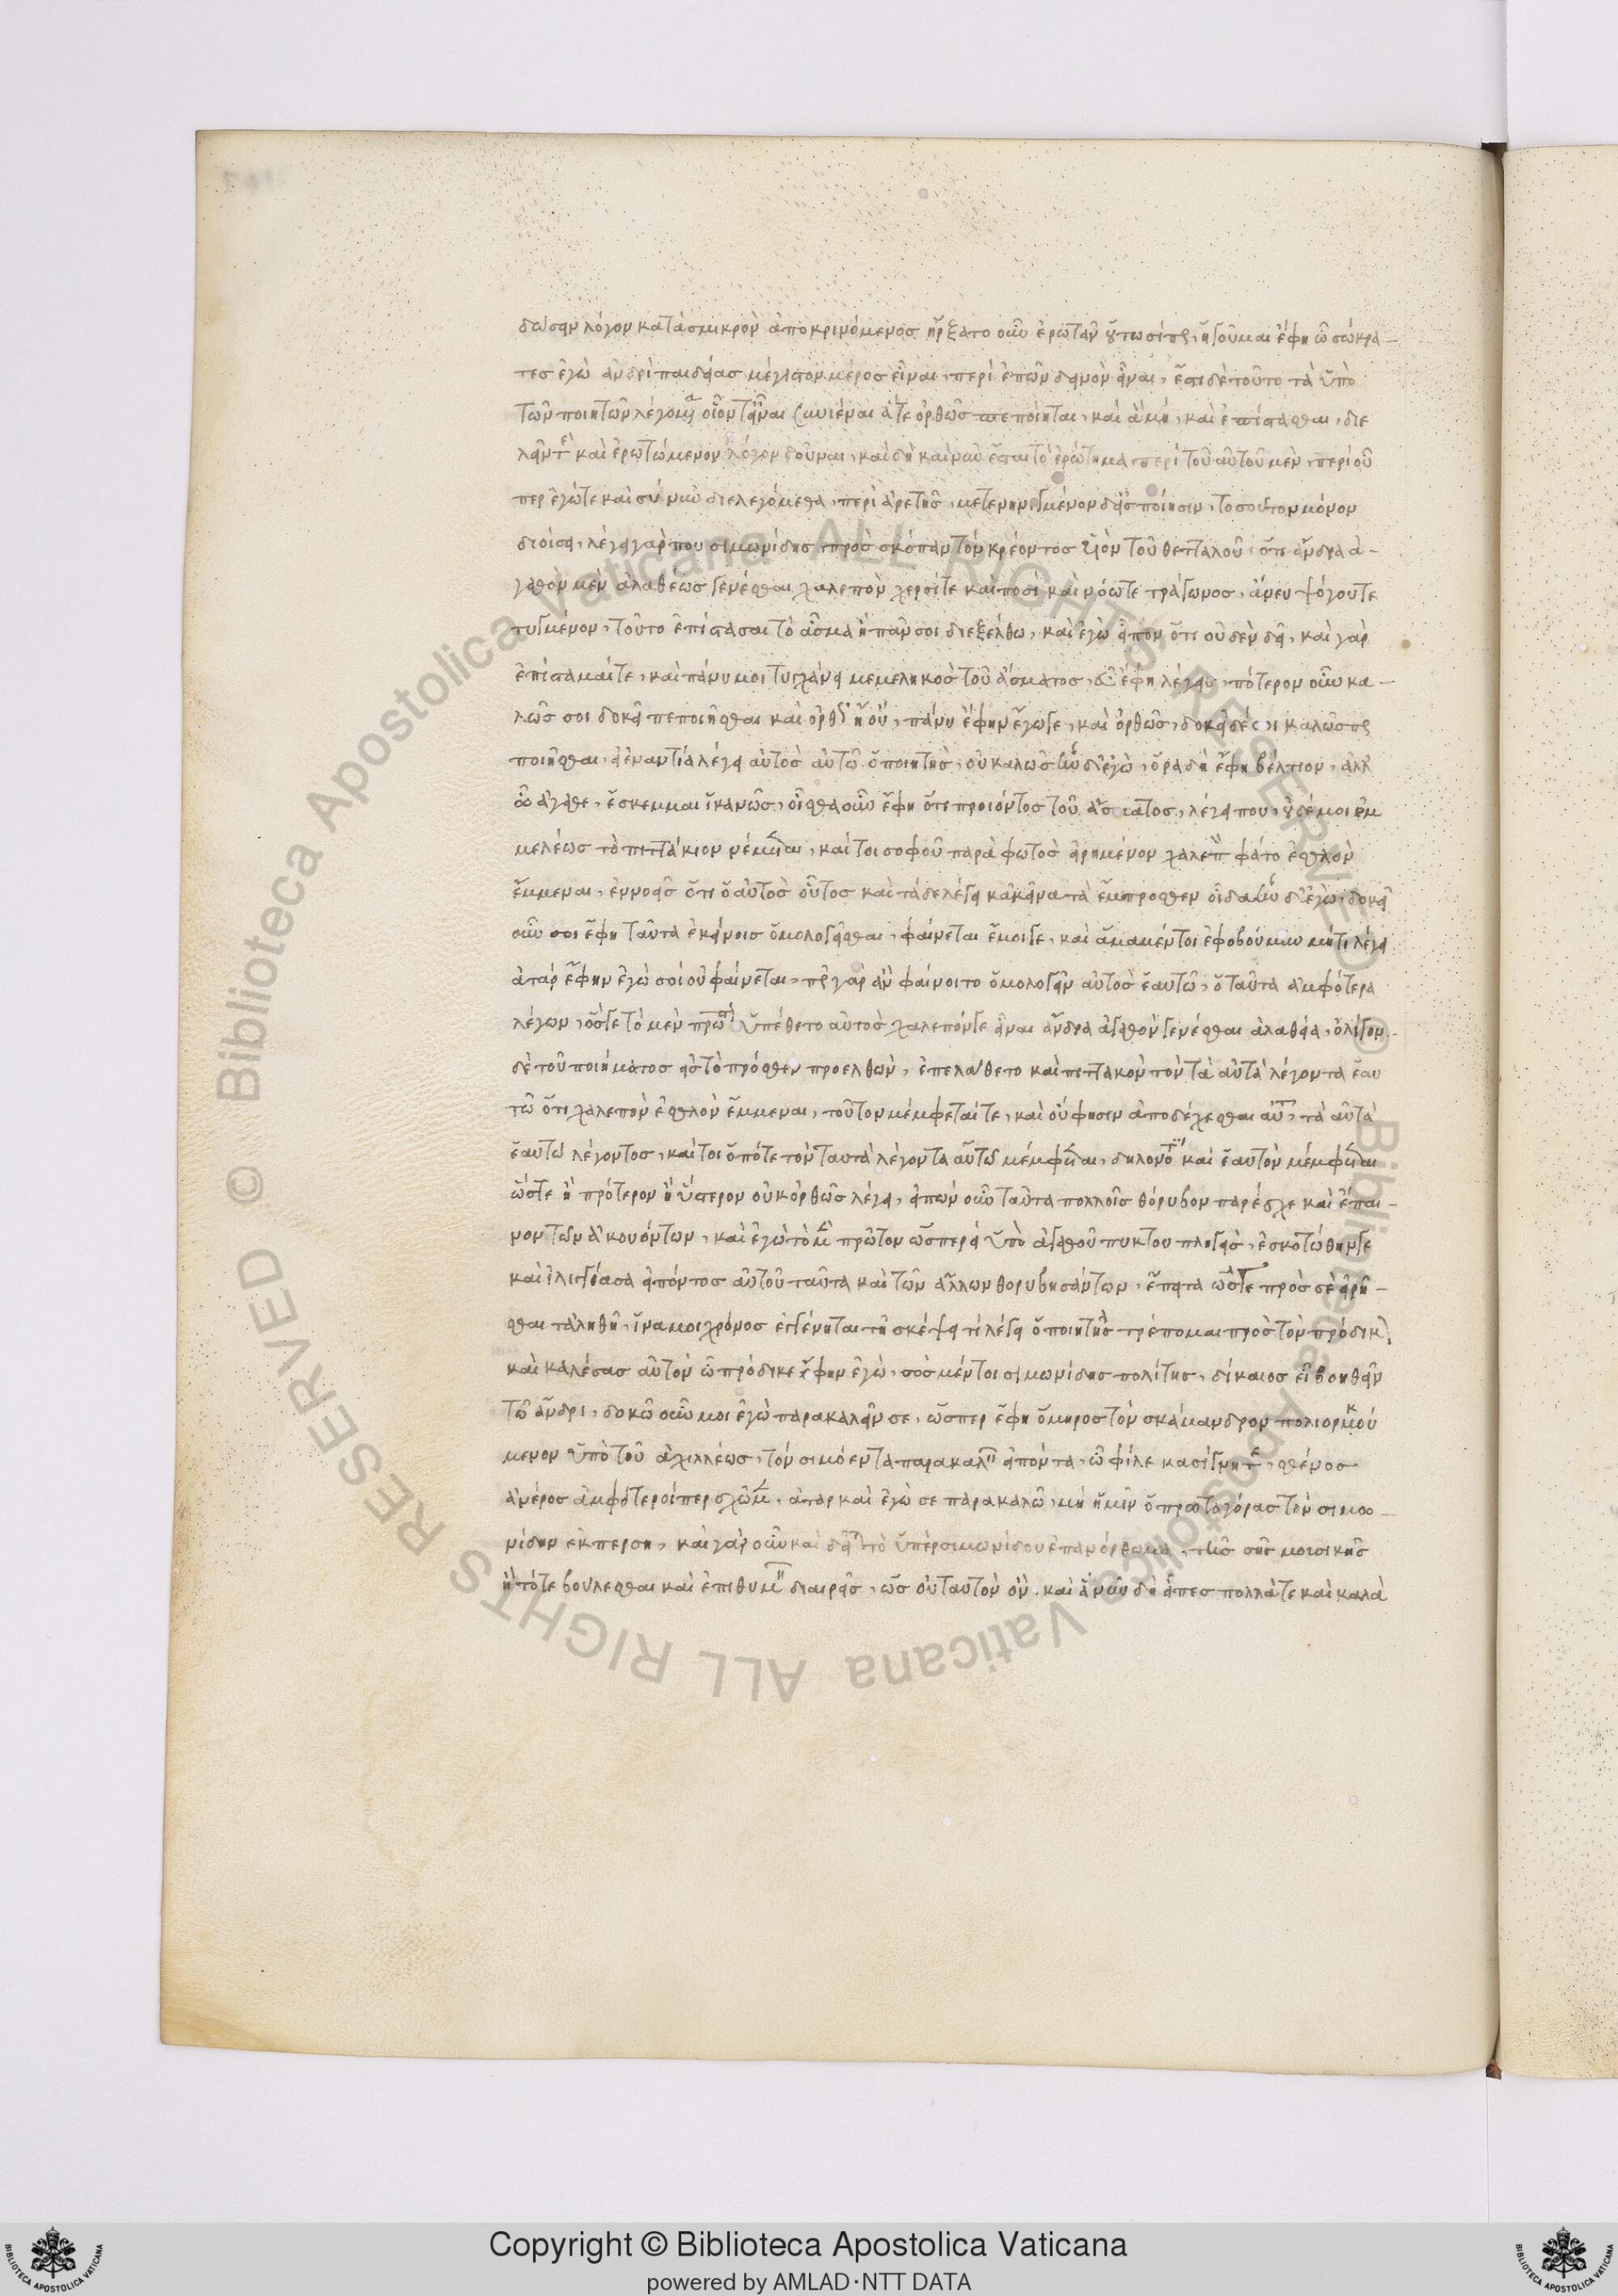 δώσειν λόγον κατὰ σμικρὸν ἀποκρινόμενος ἤρξατο οὖν ἐρωτᾶν οὑτωσί πως, ἡγοῦμαι ἔφη ὦ σώκρα-
τες ἐγὼ ἀνδρὶ παιδείας μέγιστον μέρος εἶναι, περὶ ἐπῶν δεινὸν εἶναι, ἔστι δὲ τοῦτο τὰ ὑπὸ
τῶν ποιητῶν λεγόμενα οἷόν τ' εἶναι συνιέναι ἅτε ὀρθῶς πεποίηται, καὶ ἃ μή, καὶ ἐπίστασθαι, διε
λεῖν τε καὶ ἐρωτώμενον λόγον δοῦναι, καὶ δὴ καὶ νῦν ἔσται τὸ ἐρώτημα περὶ τοῦ αὐτοῦ μὲν, περὶ οὗ
περ ἐγώτε καὶ σὺ νῦν διελεγόμεθα, περὶ ἀρετῆς, μετενηνεγμένον δ' εἰς ποίησιν, τοσοῦτον μόνον
διοίσει, λέγει γάρ που σιμωνίδης πρὸς σκόπαν τὸν κρέοντος υἱὸν τοῦ θετταλοῦ, ὅτι ἄνδρα ἀ-
γαθὸν μὲν ἀλαθέως γενέσθαι χαλεπὸν χερσίτε καὶ ποσὶ καὶ νόωτε τράγωνος, ἄνευ ψόγουτε
τυγμένον, τοῦτο ἐπίστασαι τὸ ἆσμα ἢ πᾶν σοι διεξέλθω, καὶ ἐγὼ εἶπον ὅτι οὐδὲν δεῖ, καὶ γὰρ
ἐπίσταμαίτε, καὶ πάνυ μοι τυγχάνει μεμεληκὸς τοῦ ἄσματος, εὖ ἔφη λέγεις, πότερον οὖν κα-
λῶς σοι δοκεῖ πεποιῆσθαι καὶ ὀρθῶς ἢ οὔ, πάνυ ἔφην ἔγωγε, καὶ ὀρθῶς, δοκεῖ δέ σοι καλῶς πε
ποιῆσθαι, εἰ ἐναντία λέγει αὐτὸς αὐτῷ ὁ ποιητής, οὐ καλῶς ἦν δ' ἐγώ, ὅρα δὴ ἔφη βέλτιον, ἀλλ'
ὦ ἀγαθέ, ἔσκεμμαι ἱκανῶς, οἶσθα οὖν ἔφη ὅτι προιόντος τοῦ ἄσματος, λέγει που, οὐδέ μοι ἐμ
μελέως τὸ πιττάκιον νέμεται, καίτοι σοφοῦ παρὰ φωτὸς εἰρημένον χαλεπὸν φάτο ἐσθλὸν
ἔμμεναι, ἐννοεῖς ὅτι ὁ αὐτὸς οὗτος καὶ τάδε λέγει κἀκεῖνα τὰ ἔμπροσθεν οἶδα ἦν δ' ἐγώ, δοκεῖ
οὖν σοι ἔφη ταῦτα ἐκείνοις ὁμολογεῖσθαι, φαίνεται ἔμοιγε, καὶ ἅμα μέντοι ἐφοβούμην μή τι λέγει
ἀτὰρ ἔφην ἐγὼ σοὶ οὐ φαίνεται, πῶς γὰρ ἂν φαίνοιτο ὁμολογεῖν αὐτὸς ἑαυτῷ, ὁ ταῦτα ἀμφότερα
λέγων, ὅσγε τὸ μὲν πρῶτον ὑπέθετο αὐτὸς χαλεπόνγε εἶναι ἄνδρα ἀγαθὸν γενέσθαι ἀλαθεία, ὀλίγον
δὲ τοῦ ποιήματος εἰς τὸ πρόσθεν προελθών, ἐπελάθετο καὶ πιττακὸν τὸν τὰ αὐτὰ λέγοντα ἑαυ
τῷ ὅτι χαλεπὸν ἐσθλὸν ἔμμεναι, τοῦτον μέμφεταίτε, καὶ οὔ φησιν ἀποδέχεσθαι αὐτοῦ, τὰ αὐτὰ
ἑαυτῷ λέγοντος, καίτοι ὁπότε τὸν ταυτὰ λέγοντα αὐτῷ μέμφεται, δηλονότι καὶ ἑαυτὸν μέμφεται
ὥστε ἢ πρότερον ἢ ὕστερον οὐκ ὀρθῶς λέγει, εἰπὼν οὖν ταῦτα πολλοῖς θόρυβον παρέσχε καὶ ἔπαι-
νον τῶν ἀκουόντων, καὶ ἐγὼ τὸ μὲν πρῶτον ὡσπερεὶ ὑπὸ ἀγαθοῦ πύκτου πληγείς, ἐσκοτώθηνγε
καὶ ἰλιγγίασα εἰπόντος αὐτοῦ ταῦτα καὶ τῶν ἄλλων θορυβησάντων, ἔπειτα ὥστε πρὸς σὲ εἰρῆ-
σθαι τἀληθῆ, ἵνα μοι χρόνος ἐγγένηται τῇ σκέψει τί λέγει ὁ ποιητής τρέπομαι πρὸς τὸν πρόδικον
καὶ καλέσας αὐτὸν ὦ πρόδικε ἔφην ἐγώ, σὸς μέντοι σιμωνίδης πολίτης, δίκαιος εἶ βοηθεῖν
τῷ ἀνδρί, δοκῶ οὖν μοι ἐγὼ παρακαλεῖν σε, ὥσπερ ἔφη ὅμηρος τὸν σκάμανδρον πολιορκού
μενον ὑπὸ τοῦ ἀχιλλέως, τὸν σιμόεντα παρακαλεῖν εἰπόντα, ὦ φίλε κασίγνητε, σθένος
ἀνέρος ἀμφότεροίπερ σχῶμεν, ἀτὰρ καὶ ἐγώ σε παρακαλῶ, μὴ ἡμῖν ὁ πρωταγόρας τὸν σιμω-
νίδην ἐκπέρσῃ, καὶ γὰρ οὖν καὶ δεῖται τὸ ὑπὲρ σιμωνίδου ἐπανόρθωμα, τῆς σῆς μουσικῆς
ᾗ τότε βούλεσθαι καὶ ἐπιθυμεῖν διαιρεῖς, ὡς οὐ ταυτὸν ὄν, καὶ ἃ νῦν δὴ εἶπες πολλάτε καὶ καλὰ
Copyright © Biblioteca Apostolica Vaticana
powered by AMLAD·NTT DATA